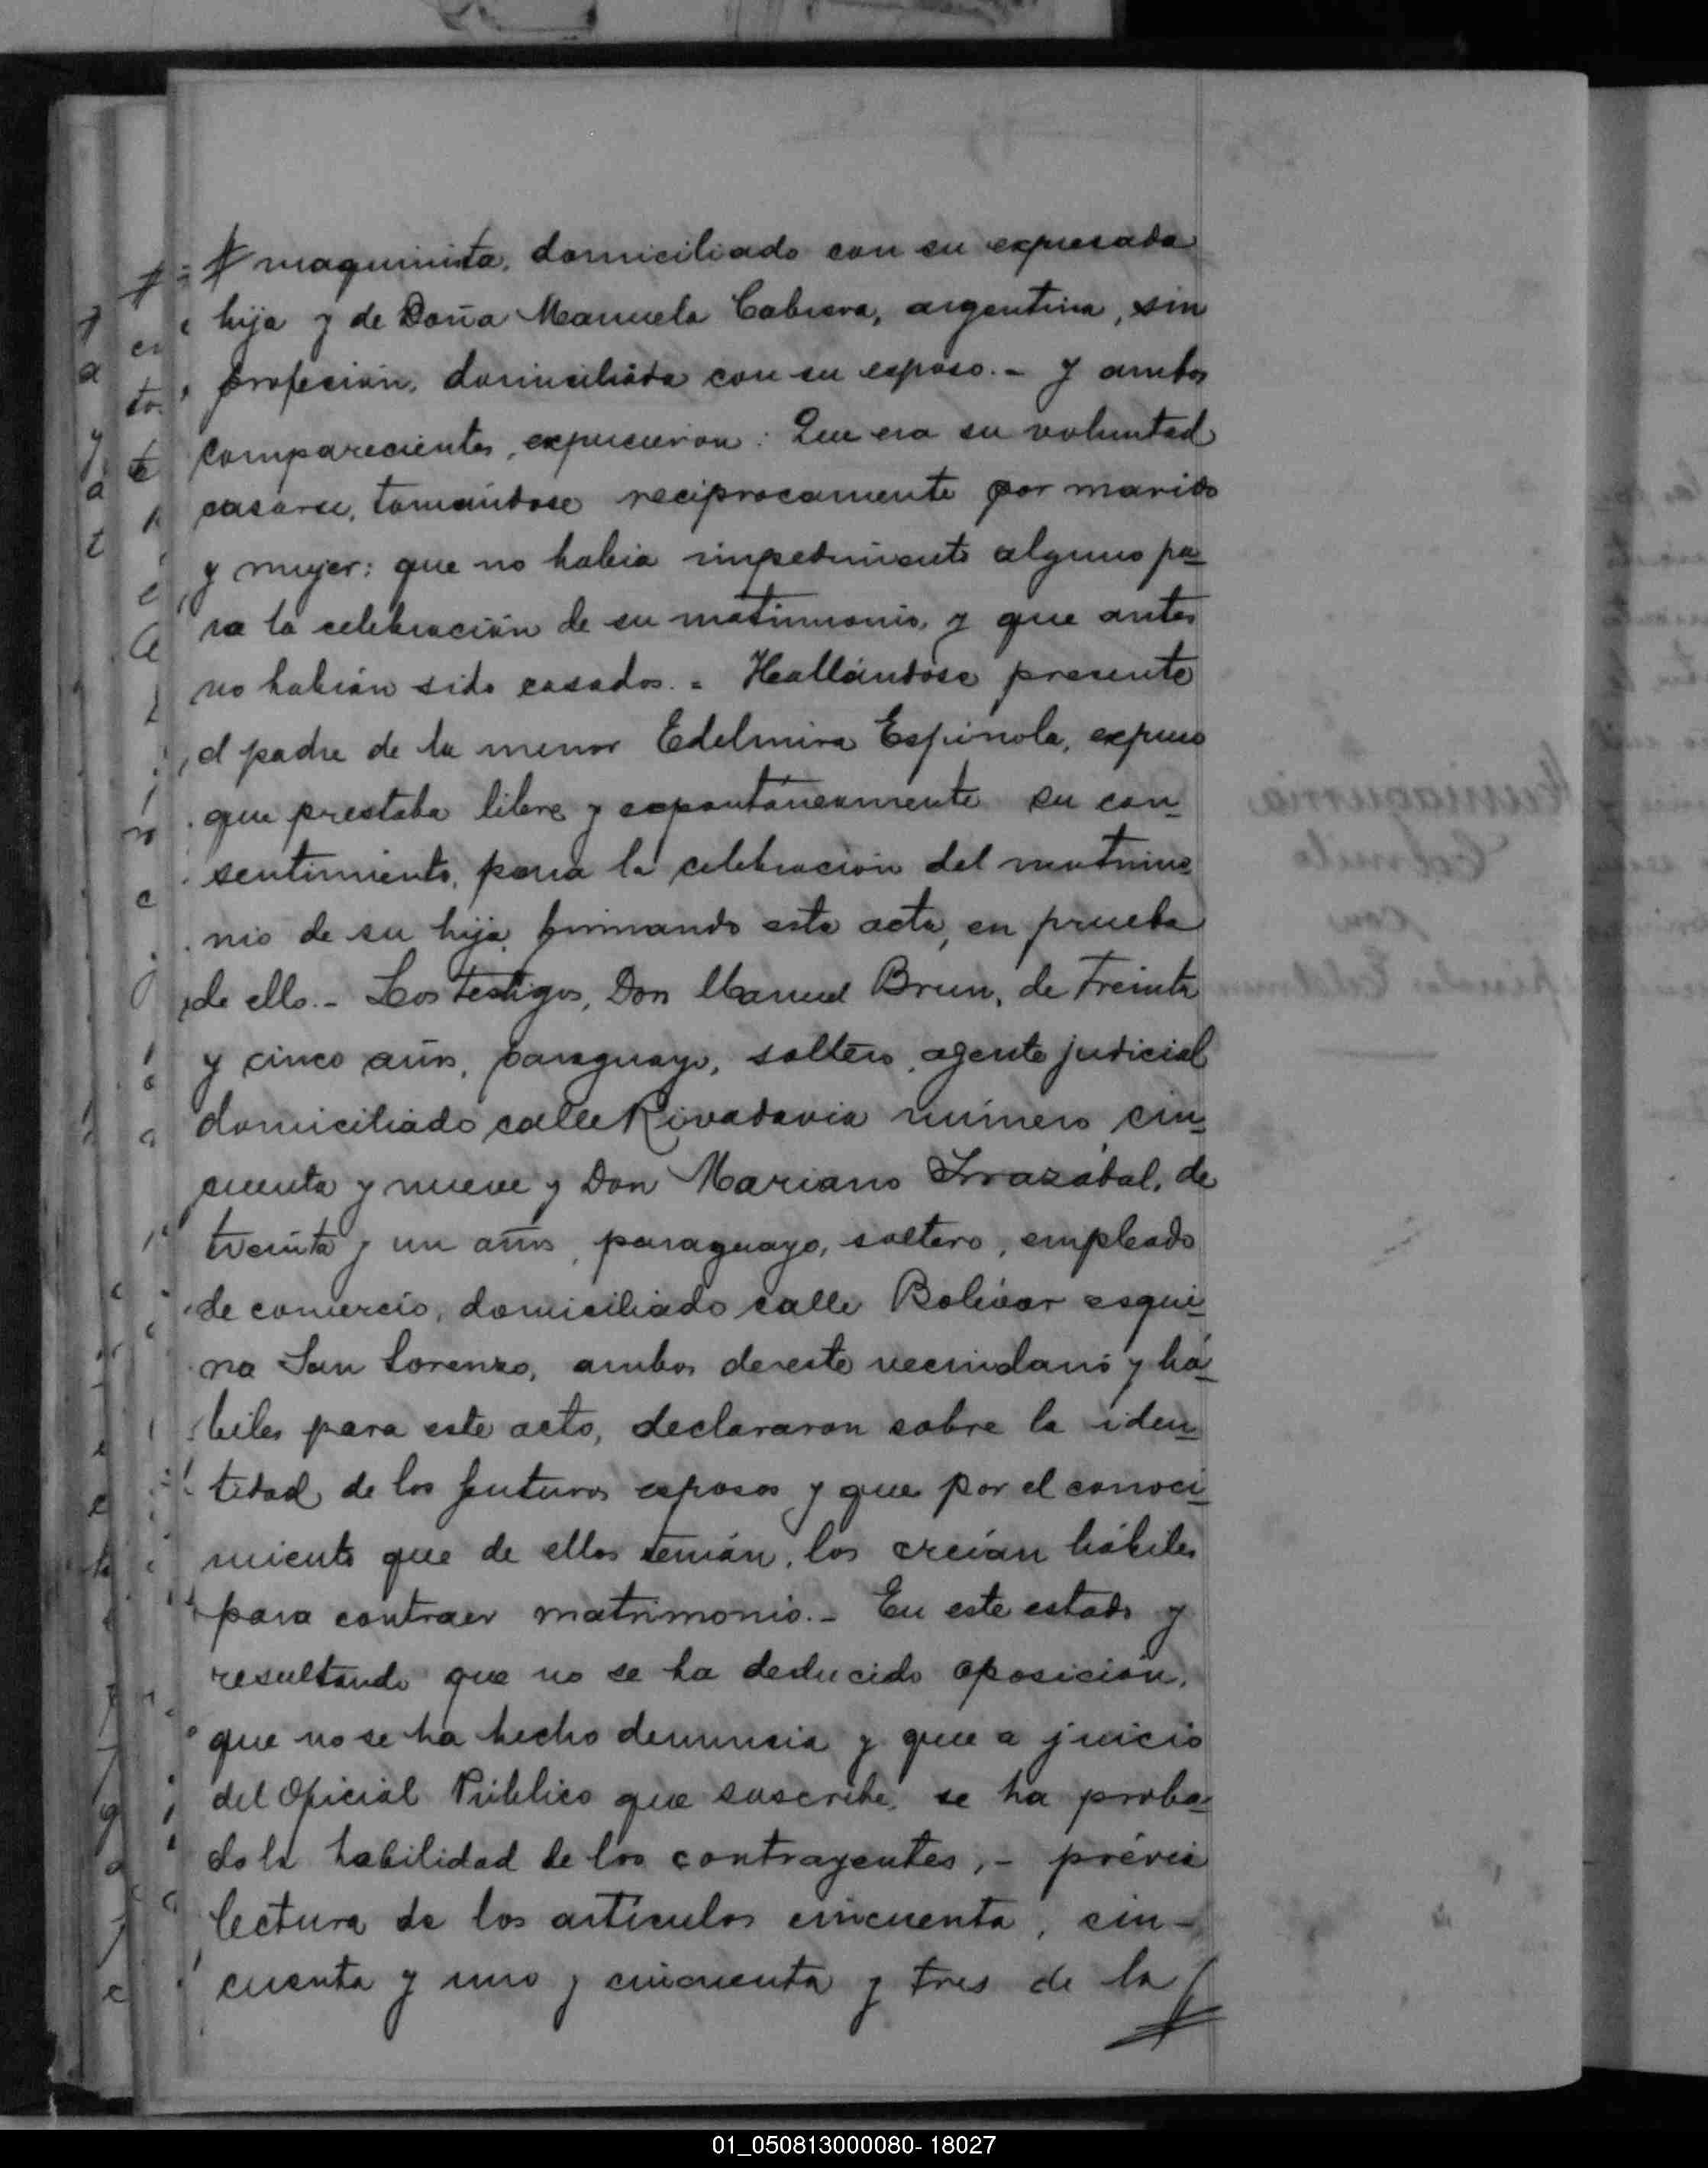 # maquinista, domiciliado con su expresada
hija y de Doña Manuela Cabrera, argentina, sin
profesión, domiciliada con su esposo.- Y ambos
comparecientes, expusieron: Que era su voluntad
casarse, tomándose reciprocamente por marido
y mujer: que no habia impedimento alguno pa-
ra la celebración de su matrimonio, y que antes
no habián sido casados.- Hallándose presente
el padre de la menor Edelmira Espínola, expuso
que prestaba libre y espontáneamente su con-
sentimiento, para la celebración del matrimo-
nio de su hija, firmando esta acta, en prueba
de ello.- Los testigos, Don Manuel Brun, de treinta
y cinco años, paraguayo, soltero, agente judicial
domiciliado calle Rivadavia número cin-
cuenta y nueve y Don Mariano Irrazábal, de
treinta y un años, paraguayo, soltero, empleado
de comercio, domiciliado calle Bolívar esqui-
na San Lorenzo, ambos de este vecindario y há-
biles para este acto, declararon sobre la iden-
tidad de los futuros esposos y que por el conoci-
miento que de ellos tenián, los creían hábiles
para contraer matrimonio.- En este estado y
resultando que no se ha deducido oposición,
que no se ha hecho denuncia y que a juicio
del Oficial Público que suscribe, se ha proba-
do la habilidad de los contrayentes,- prévia
lectura de los artículos cincuenta, cin-
cuenta y uno y cincuenta y tres de la #
01_050813000080- 18027